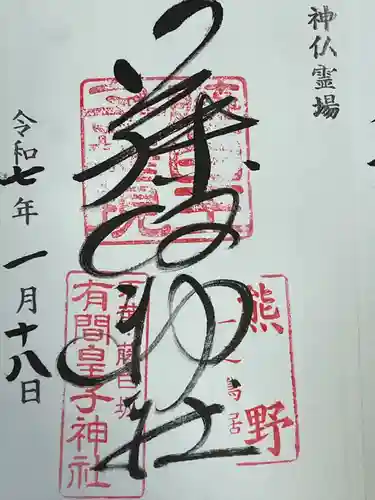 神仏霊場
藤白神社
熊野
一之鳥居
藤白坂
有間皇子神社
令和七年一月十八日